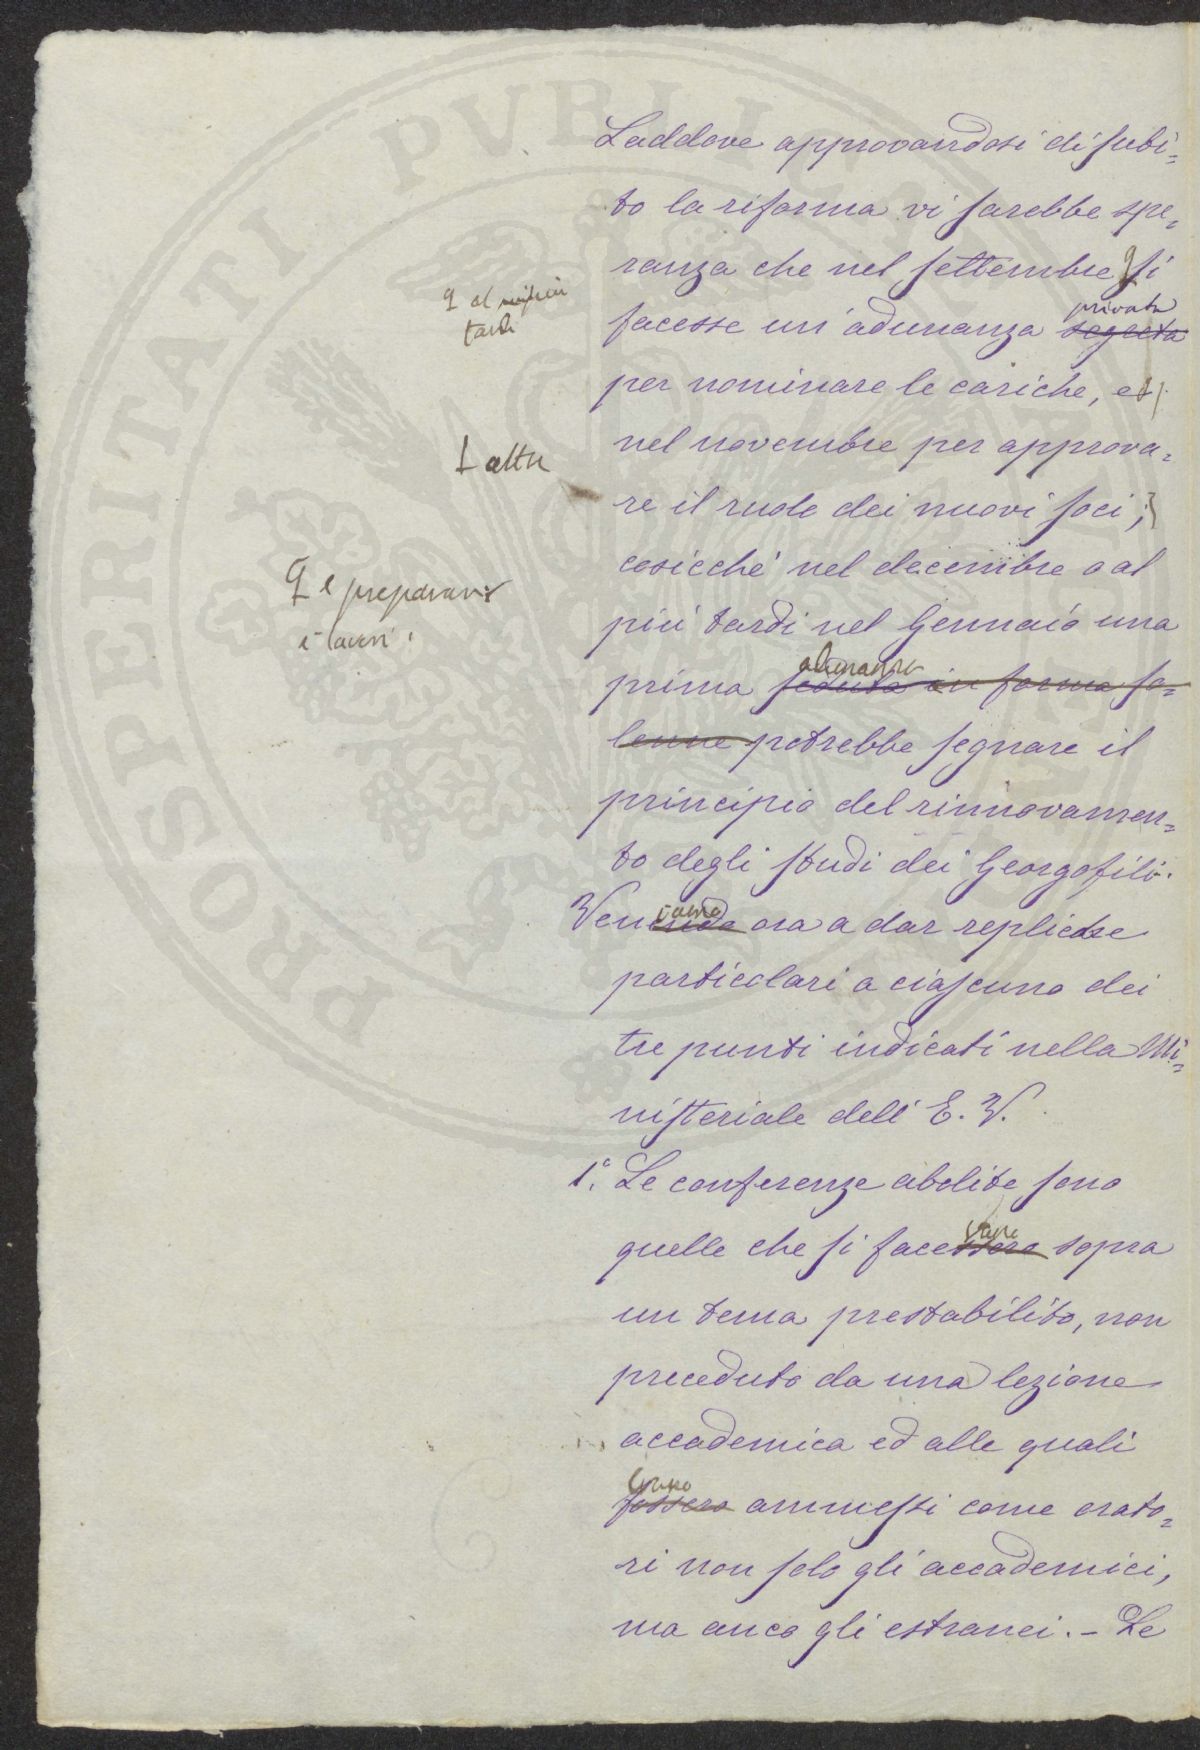 Laddove approvandosi di subi=
to la riforma vi sarebbe spe=
ranza che nel settembre si
facesse un'adunanza segreta
privata
per nominare le cariche, ed
nel novembre per approva=
re il ruolo dei nuovi soci;
cosicché nel decembre o al
più tardi nel Gennaio una
adunanza
prima seduta in forma so=
lenne potrebbe segnare il
principio del rinnovamen=
to degli studi dei Georgofili.
Venendo ora a dar repliche
particolari a ciascuno dei
tre punti indicati nella Mi=
nisteriale dell'E. V.
1.° Le conferenze abolite sono
quelle che si facessero sopra
un tema prestabilito, non
preceduto da una lezione
accademica ed alle quali
fossero ammessi come orato=
ri non solo gli accademici,
ma anco gli estranei. - Le
o al
tardi
altre
e preparare
i lavori
PROSPERITATI PUBLI